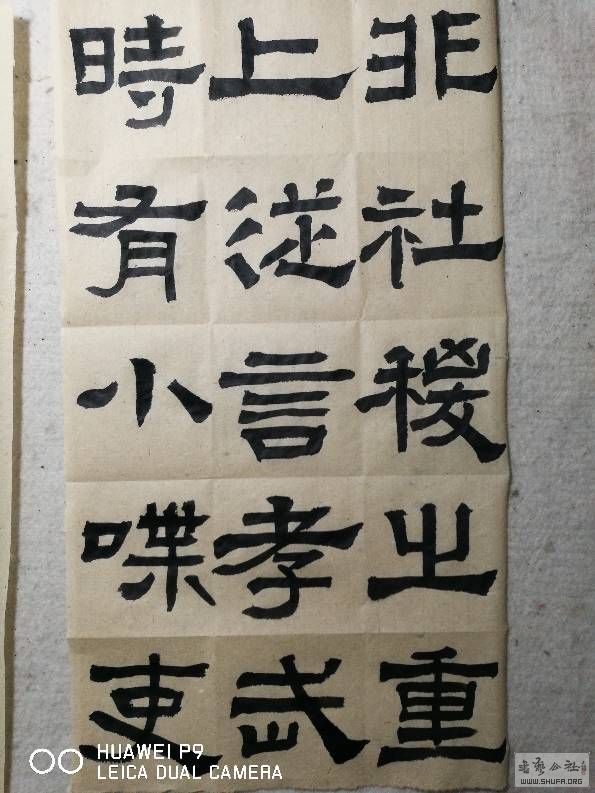 非社稷之重
上從言孝武
時有小喋吏
HUAWEI P9
LEICA DUAL CAMERA
书艺公社
WWW.SHUFA.ORG